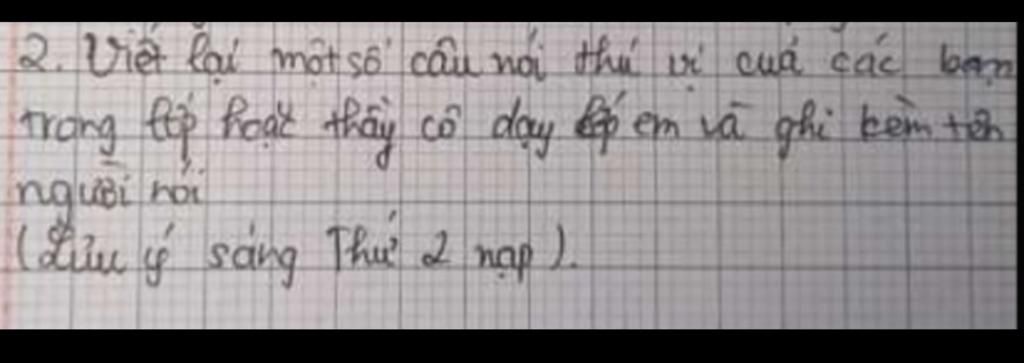 2. Viết lại một số câu nói thú vị cuả các bạn
trong lớp hoặc thầy cô dạy lớp em và ghi kèm tên
người nói
(Lưu ý sáng Thứ 2 nạp).